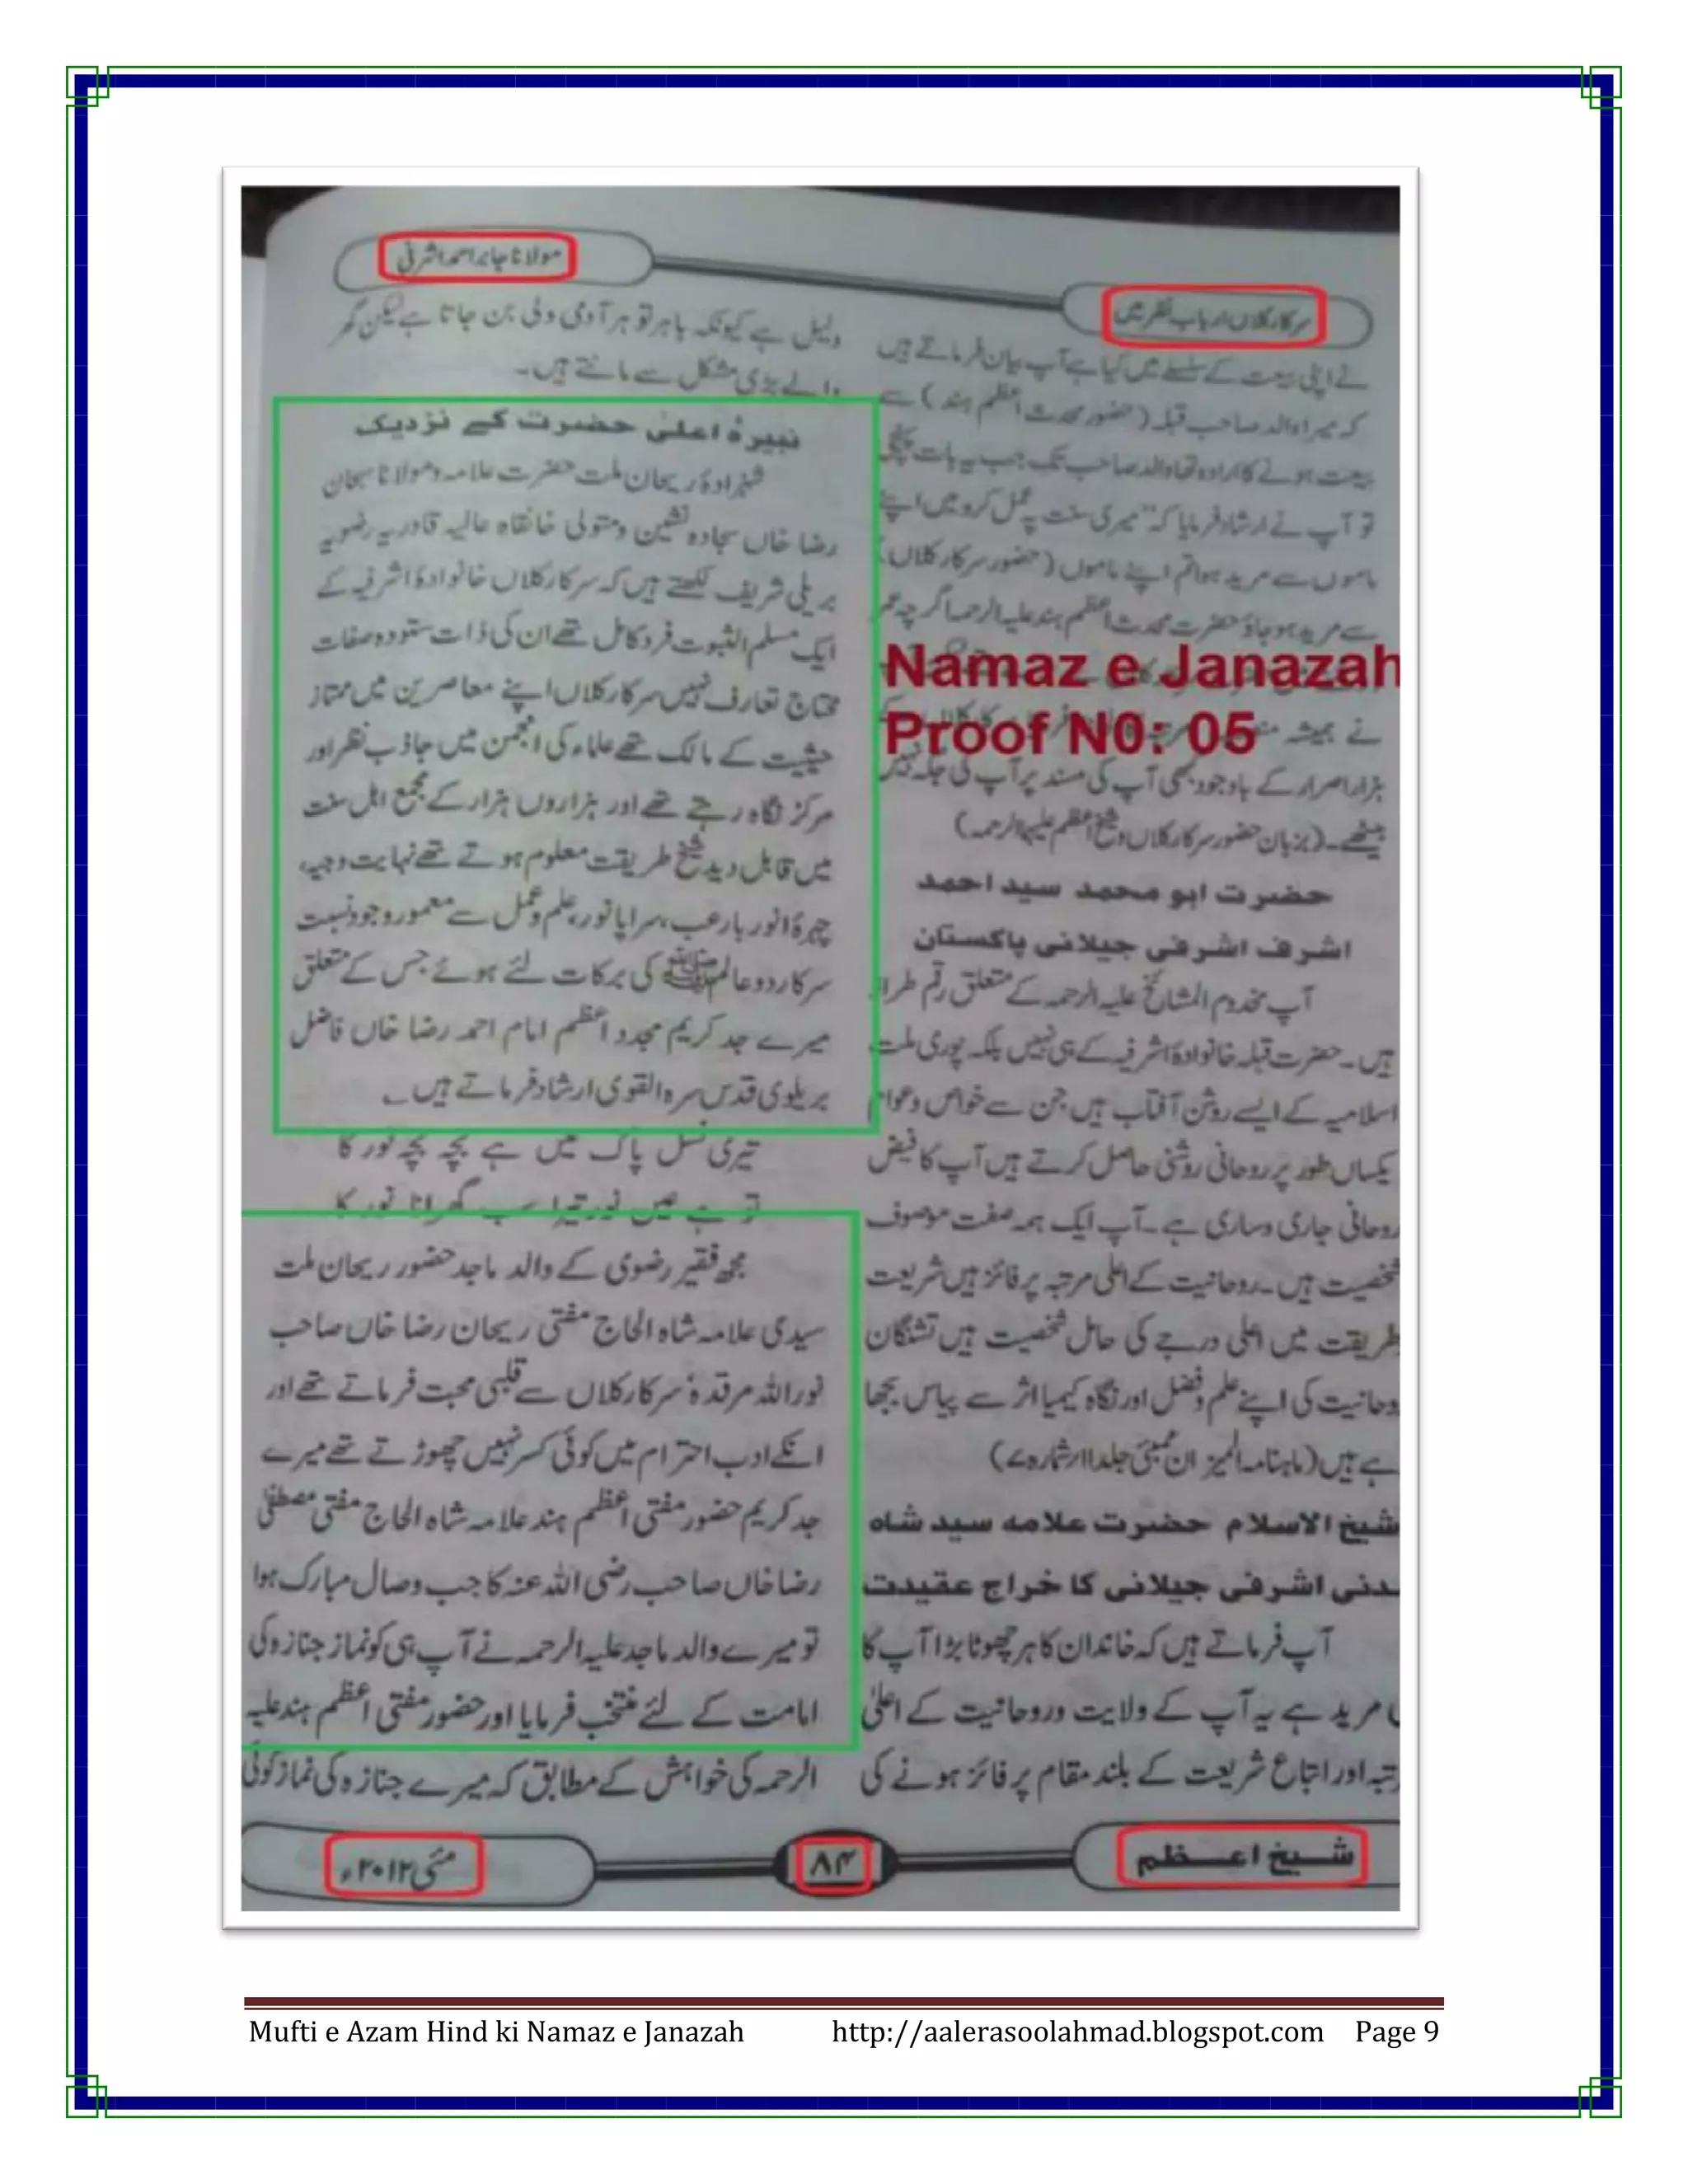 سرکار کلاں ارباب نظر میں
مولانا جابر احمد اشرفی
نے اپنی بیعت کے سلسلے میں کیا ہے آپ بیان فرماتے ہیں
کہ میرا والد صاحب قبلہ (حضور محدث اعظم ہند) سے
بیعت ہونے کا ارادہ تھا والد صاحب تک جب یہ بات پہنچی
تو آپ نے ارشاد فرمایا کہ "میری سنت پہ عمل کرو میں اپنے
ماموں سے مرید ہوا تم اپنے ماموں (حضور سرکار کلاں)
سے مرید ہو جاؤ حضرت محدث اعظم ہند علیہ الرحمہ اگرچہ عمر
Namaz e Janazah
Proof N0: 05
نے ہمیشہ
ہزار اصرار کے باوجود بھی آپ کی مسند پر آپ کی جگہ نہیں
بیٹھے۔ (بزبان حضور سرکار کلاں و شیخ اعظم علیہما الرحمہ)
حضرت ابو محمد سید احمد
اشرف اشرفی جیلانی پاکستان
آپ مخدوم المشائخ علیہ الرحمہ کے متعلق رقم طراز
ہیں۔ حضرت قبلہ خانوادۂ اشرفیہ کے ہی نہیں بلکہ پوری ملت
اسلامیہ کے ایسے روشن آفتاب ہیں جن سے خواص و عوام
یکساں طور پر روحانی روشنی حاصل کرتے ہیں آپ کا فیض
روحانی جاری و ساری ہے۔ آپ ایک ہمہ صفت موصوف
شخصیت ہیں۔ روحانیت کے اعلی مرتبہ پر فائز ہیں شریعت
طریقت میں اعلی درجے کی حامل شخصیت ہیں تشنگان
روحانیت کی اپنے علم و فضل اور نگاہ کیمیا اثر سے پیاس بجھا
ہے ہیں (ماہنامہ المیزان ممبئی جلد ۱۱ شمارہ ۷)
شیخ الاسلام حضرت علامہ سید شاہ
مدنی اشرفی جیلانی کا خراج عقیدت
آپ فرماتے ہیں کہ خاندان کا ہر چھوٹا بڑا آپ کا
مرید ہے یہ آپ کے ولایت و روحانیت کے اعلیٰ
رتبہ اور اتباع شریعت کے بلند مقام پر فائز ہونے کی
دلیل ہے کیونکہ باہر تو ہر آدمی ولی بن جاتا ہے لیکن گھر
والے بڑی مشکل سے مانتے ہیں۔
نبیرۂ اعلیٰ حضرت کے نزدیک
شہزادۂ ریحان ملت حضرت علامہ و مولانا سبحان
رضا خاں سجادہ نشین و متولی خانقاہ عالیہ قادریہ رضویہ
بریلی شریف لکھتے ہیں کہ سرکار کلاں خانوادۂ اشرفیہ کے
ایک مسلم الثبوت فرد کامل تھے ان کی ذات ستودہ صفات
محتاج تعارف نہیں سرکار کلاں اپنے معاصرین میں ممتاز
حیثیت کے مالک تھے علماء کی انجمن میں جاذب نظر اور
مرکز نگاہ رہتے تھے اور ہزاروں ہزار کے مجمع اہل سنت
میں قابل دید شیخ طریقت معلوم ہوتے تھے نہایت وجیہ،
چہرۂ انور بارعب، سراپا نور، علم و عمل سے معمور وجود نسبت
سرکار دو عالم ﷺ کی برکات لئے ہوئے جس کے متعلق
میرے جد کریم مجدد اعظم امام احمد رضا خاں فاضل
بریلوی قدس سرہ القوی ارشاد فرماتے ہیں۔
تیری نسل پاک میں ہے بچہ بچہ نور کا
تو ہے عین نور تیرا سب گھرانا نور کا
مجھ فقیر رضوی کے والد ماجد حضور ریحان ملت
سیدی علامہ شاہ الحاج مفتی ریحان رضا خاں صاحب
نور اللہ مرقدہٗ سرکار کلاں سے قلبی محبت فرماتے تھے اور
انکے ادب احترام میں کوئی کسر نہیں چھوڑتے تھے میرے
جد کریم حضور مفتی اعظم ہند علامہ شاہ الحاج مفتی مصطفی
رضا خاں صاحب رضی اللہ عنہ کا جب وصال مبارک ہوا
تو میرے والد ماجد علیہ الرحمہ نے آپ ہی کو نماز جنازہ کی
امامت کے لئے منتخب فرمایا اور حضور مفتی اعظم ہند علیہ
الرحمہ کی خواہش کے مطابق کہ میرے جنازہ کی نماز کوئی
شیخ اعظم
۸۴
مئی ۲۰۱۲ء
Mufti e Azam Hind ki Namaz e Janazah http://aalerasoolahmad.blogspot.com Page 9